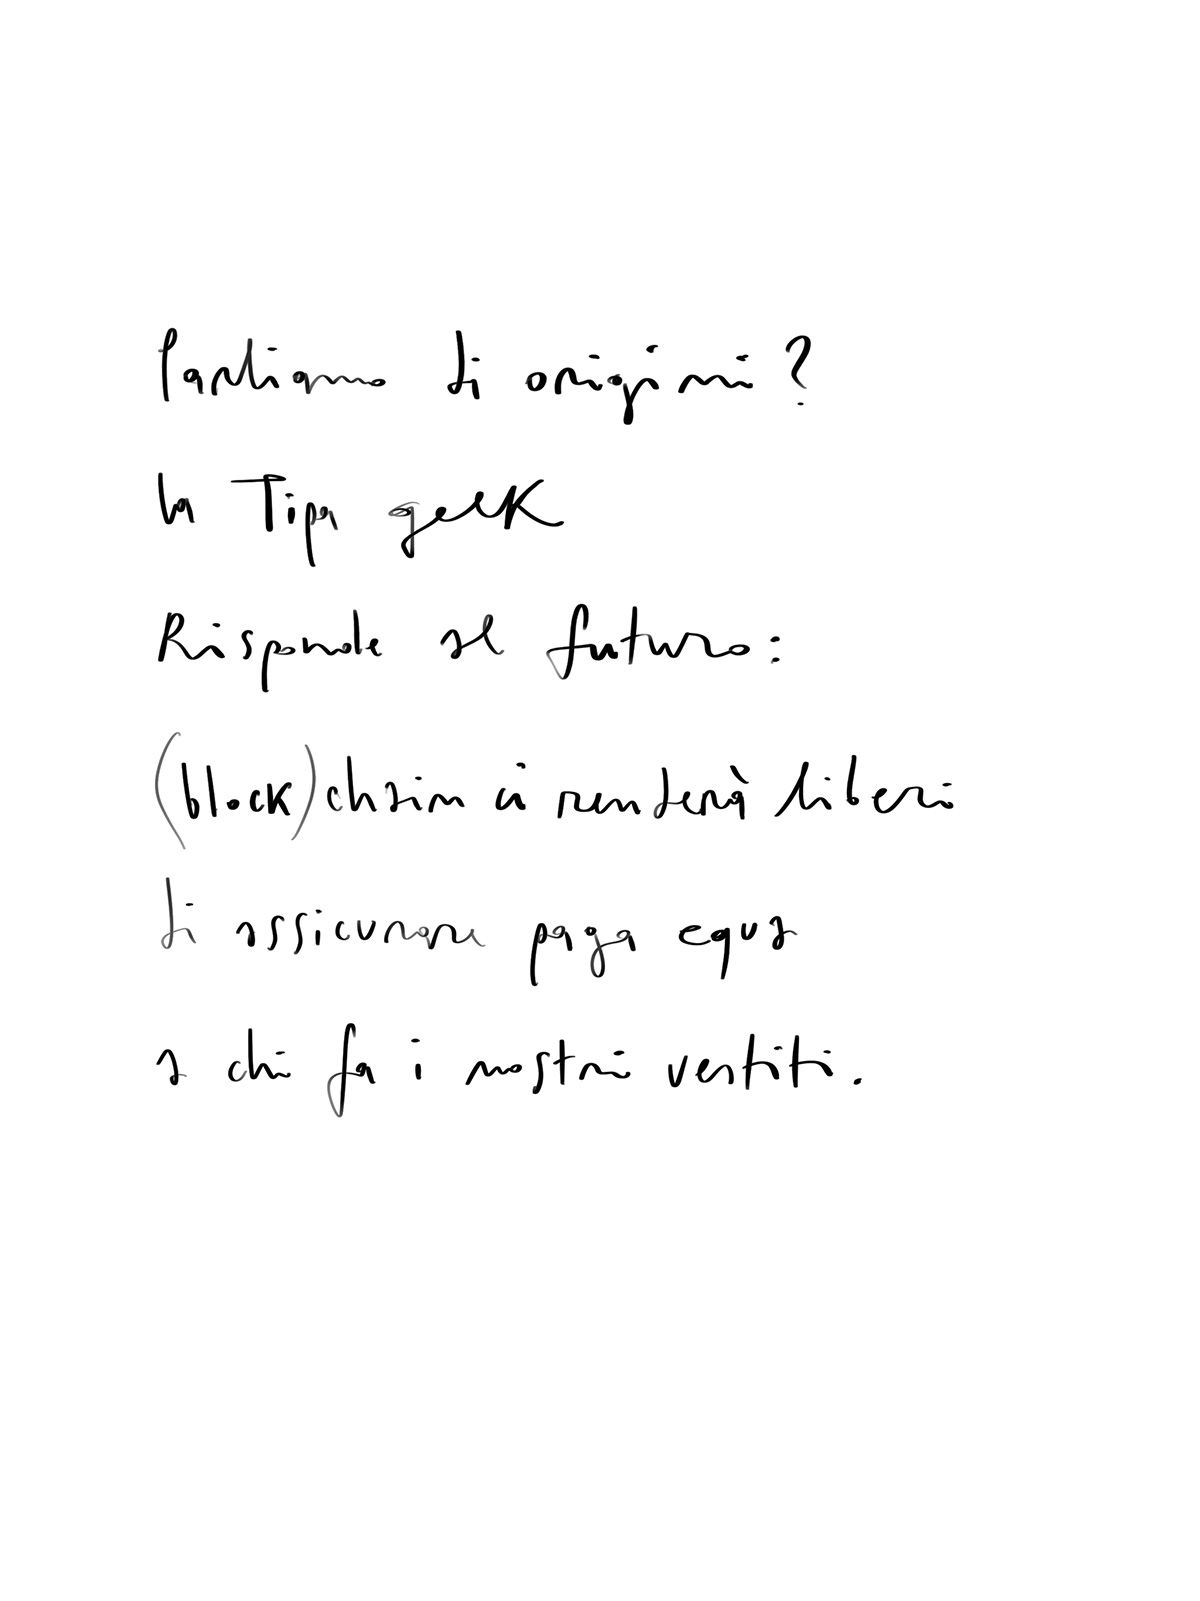 Parliamo di origini?
la Tipa geek
Risponde al futuro:
(block)chain ci renderà liberi
di assicurare paga equa
a chi fa i nostri vestiti.